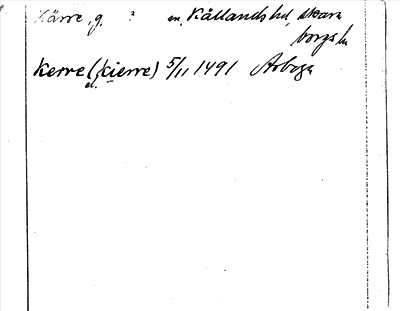 Kärre, g. ? sn, Kållands hd, Skara
borgs ln
Kerre (Kierre) 5/11 1491 Arboga
el.